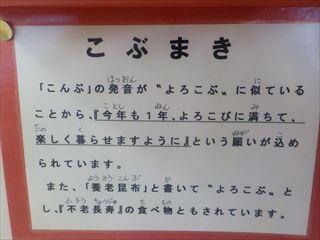 こぶまき
「こんぶ」の発音が〝よろこぶ〟に似ている
ことから、『今年も1年、よろこびに満ちて、
楽しく暮らせますように』という願いが込め
られています。
また、「養老昆布」と書いて〝よろこぶ〟と
し、『不老長寿』の食べ物ともされています。